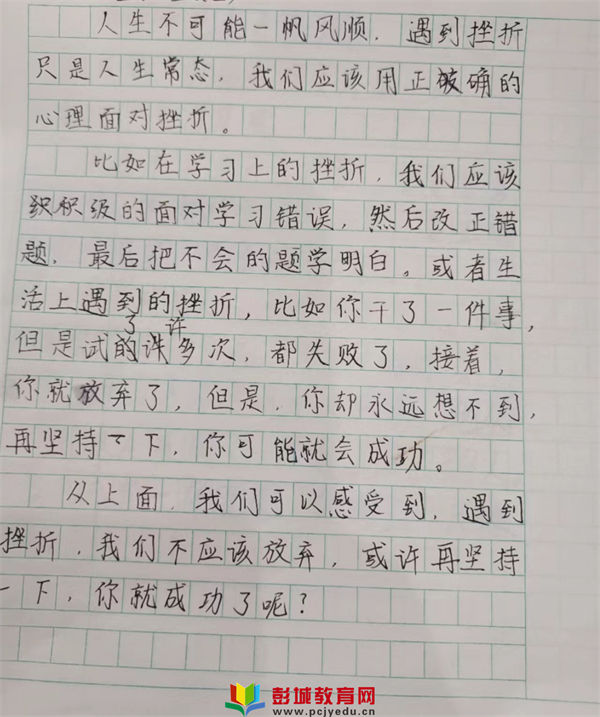 人生不可能一帆风顺．遇到挫折
只是人生常态．我们应该用正确的
心理面对挫折。
比如在学习上的挫折，我们应该
积级的面对学习错误．然后改正错
题．最后把不会的题学明白。或者生
活上遇到的挫折，比如你干了一件事，
但是试了许多次，都失败了，接着，
你就放弃了，但是，你却永远想不到，
再坚持一下，你可能就会成功。
从上面，我们可以感受到，遇到
挫折，我们不应该放弃，或许再坚持
一下，你就成功了呢？
彭城教育网
www.pcjyedu.cn